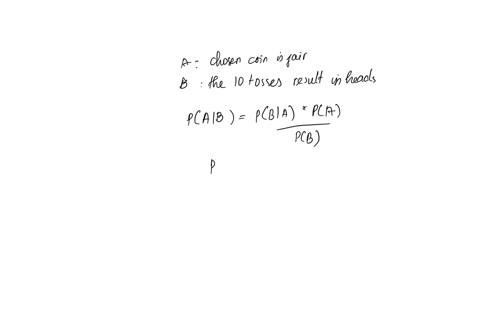 A : chosen coin is fair
B : the 10 tosses result in heads
P(A|B) = P(B|A) * P(A)
P(B)
P